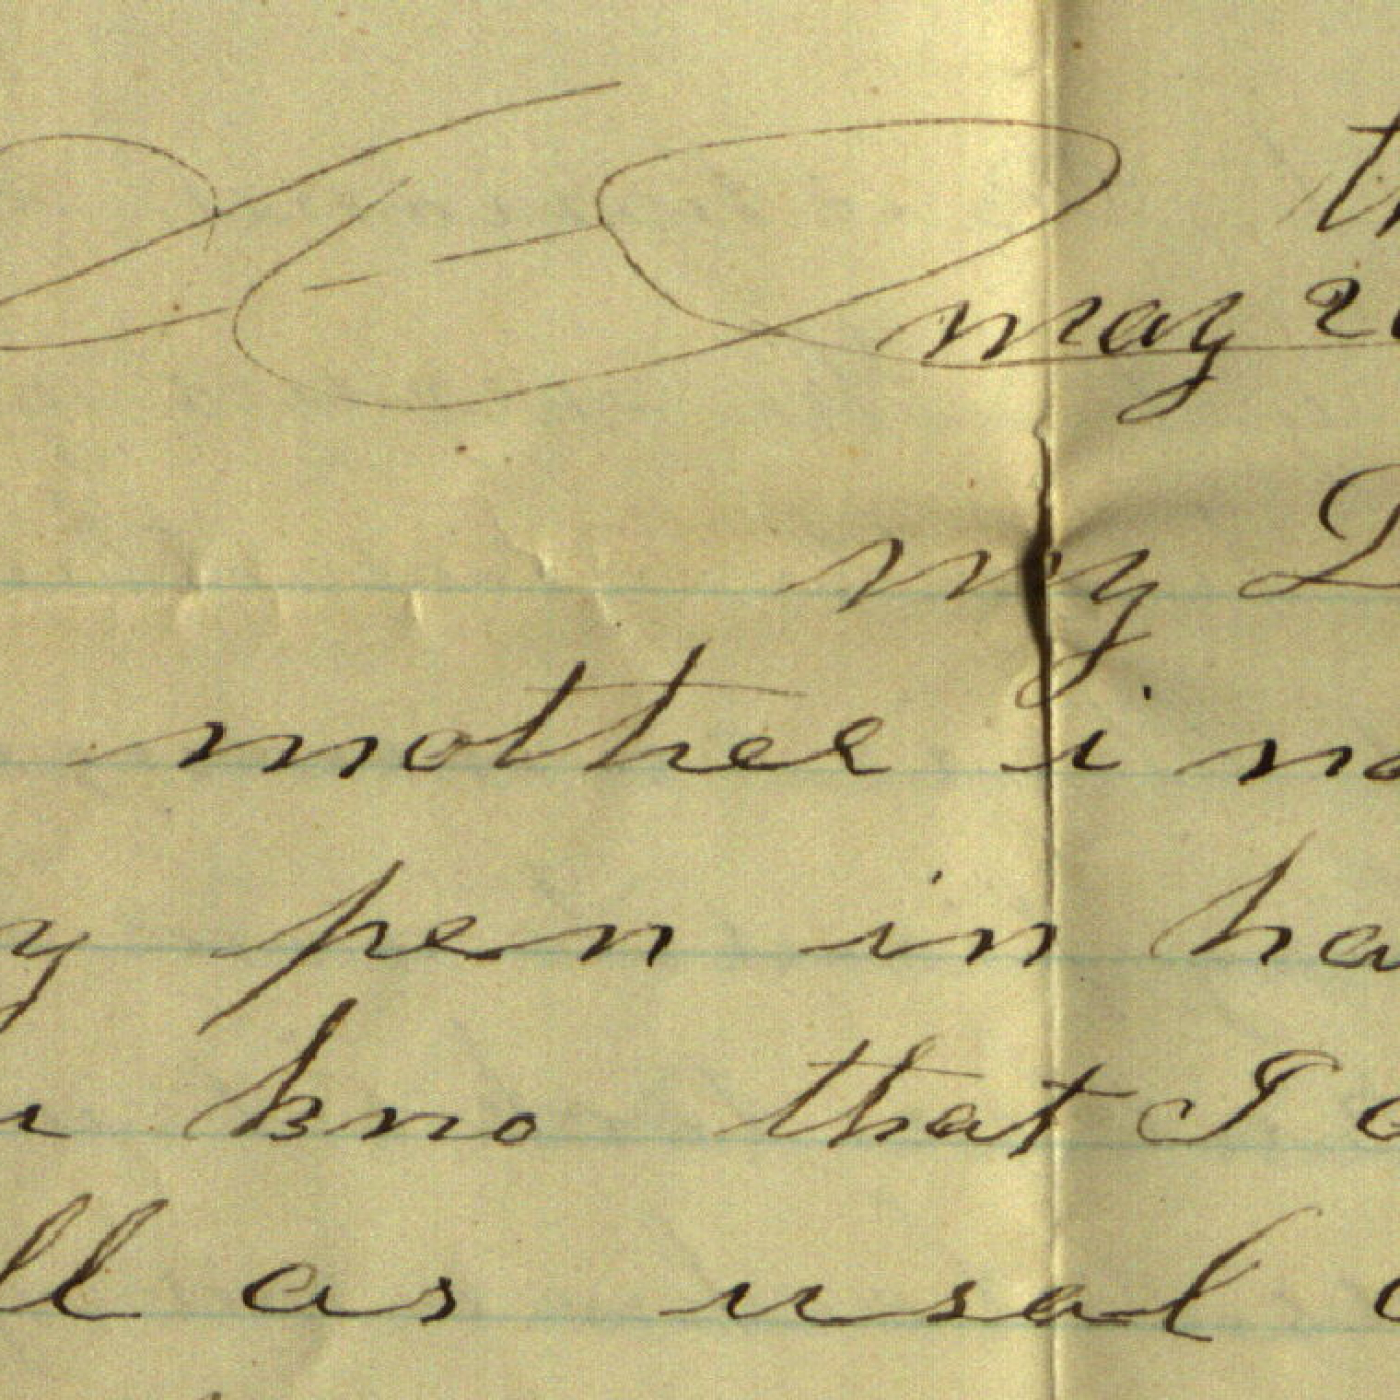 th
may 20
my D
mother i no
y pen in ha
u kno that I a
ll as usal